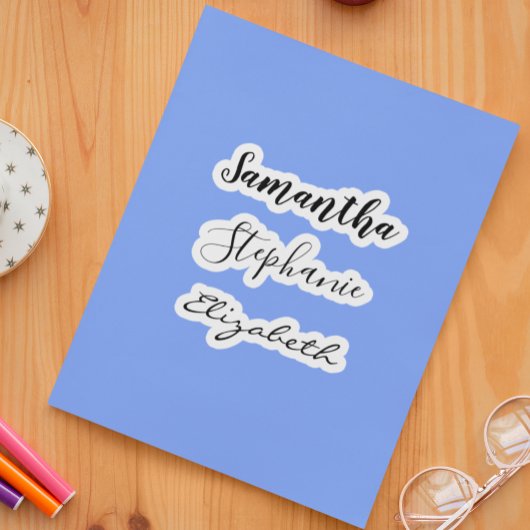 Samantha
Stephanie
Elizabeth